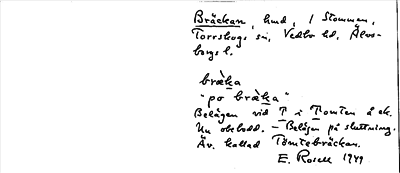 Bräckan, hmd, i Stommen,
Torrskogs sn, Vedbo hd, Älvs-
borgs l.
bræ̀ka
"po bræ̀ka"
Belägen vid T i Tomten å ek.
Nu obebodd. – Belägen på sluttning.
Äv. kallad Tomtebräckan.
E. Rosell 1949